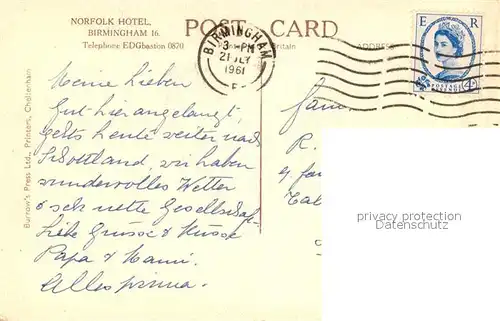 NORFOLK HOTEL,
BIRMINGHAM 16.
Telephone: EDGbaston 0870
POST CARD
Britain
ADDRESS
BIRMINGHAM
3-PM
21 JLY
1961
E
E R
POSTAGE
Burrow's Press Ltd., Printers, Cheltenham
Meine Lieben
Gut hier angelangt,
gehts heute weiter nach
Schottland, wir haben
wundervolles Wetter
& sehr nette Gesellschaft
Liebe Grüsse & Küsse
Papa & Mami.
Alles prima.
Fam.
R.
4
privacy protection
www.oldthing.de